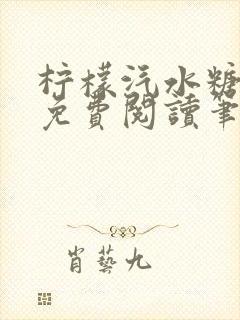 柠檬汽水糖
免費閱讀筆
肖藝九